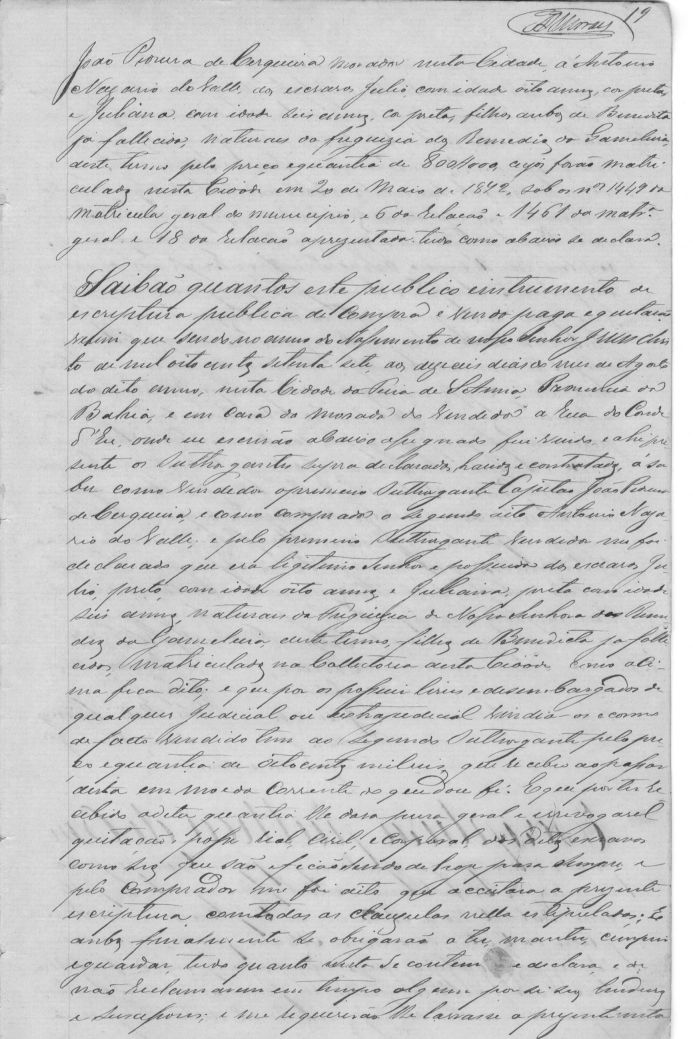 19
João Pereira de Cerqueira morador nesta Cidade, á Antonio
Nazario do Valle, dos escravos Julio com idade oito annos, cor preta,
e Juliana com idade seis annos, cor preta, filhos ambos de Benedicta
ja fallecida, naturais da freguizia dos Remedios da Gameleira,
deste termo pelo preço e quantia de 800$000, cujos forão matri
culados nesta Cidade em 20 de Maio de 1872, sob os nos 1449 da
matricula geral do municipio, e 6 da relação e 1461 da matra
geral e 18 da relação apresentada tudo como abaixo se declara.
Saibão quantos este publico instrumento de
escriptura publica de compra e venda paga e quitação
virem que sendo no anno do Nascimento de nosso Senhor Jesus Chris
to de mil oito centos setenta sete, aos dezeseis dias do mes de Agosto
do dito anno, nesta Cidade da Feira de Santa Anna, Provincia da
Bahia, e em casa da morada do vendedor a Rua do Conde
d'Eu, onde eu escrivão abaixo assignado fui vindo, e ahi pre
sente os Outhorgantes supra declarados, havidos e contratados, á sa
ber como vendedor o primeiro Outhorgante Capitão João Pereira
de Cerqueira, e como comprador o segundo dito Antonio Naza
rio do Valle, e pelo primeiro Outhorgante vendedor me foi
declarado que era legitimo senhor e possuidor dos escravos Ju
lio, preto, com idade oito annos e Juliana, preta com idade
seis annos, naturais da Freguezia de Nossa Senhora dos Reme
dios da Gameleira deste termo, filhos de Benedicta ja falle
cida, matriculados na Collectoria desta Cidade, como aci
ma fica dito; e que por os possuir livres e desembargados de
qualquer judicial ou extrajudicial vendia os e como
de facto vendido tem ao segundo Outhorgante pelo pre
ço e quantia de oito centos mil reis, que recebeo ao passar
desta em moeda corrente do que dou fé. E que por ter re
cebido a dita quantia lhe dava pura geral e irrevogavel
quitação, posse real, civil, e corporal, dos ditos escravos
como seus que são e ficão sendo de hoje para sempre, e
pelo comprador me foi dito que acceitava a presente
escriptura com todas as clausulas nella estipuladas; E
ambos finalmente se obrigarão a ter, manter, cumprir
e guardar tudo quanto nesta se contem e declara, e de
não reclamarem em tempo algum por si seus herdeiros
e successores; e me requererão lhe lavrasse a presente nesta